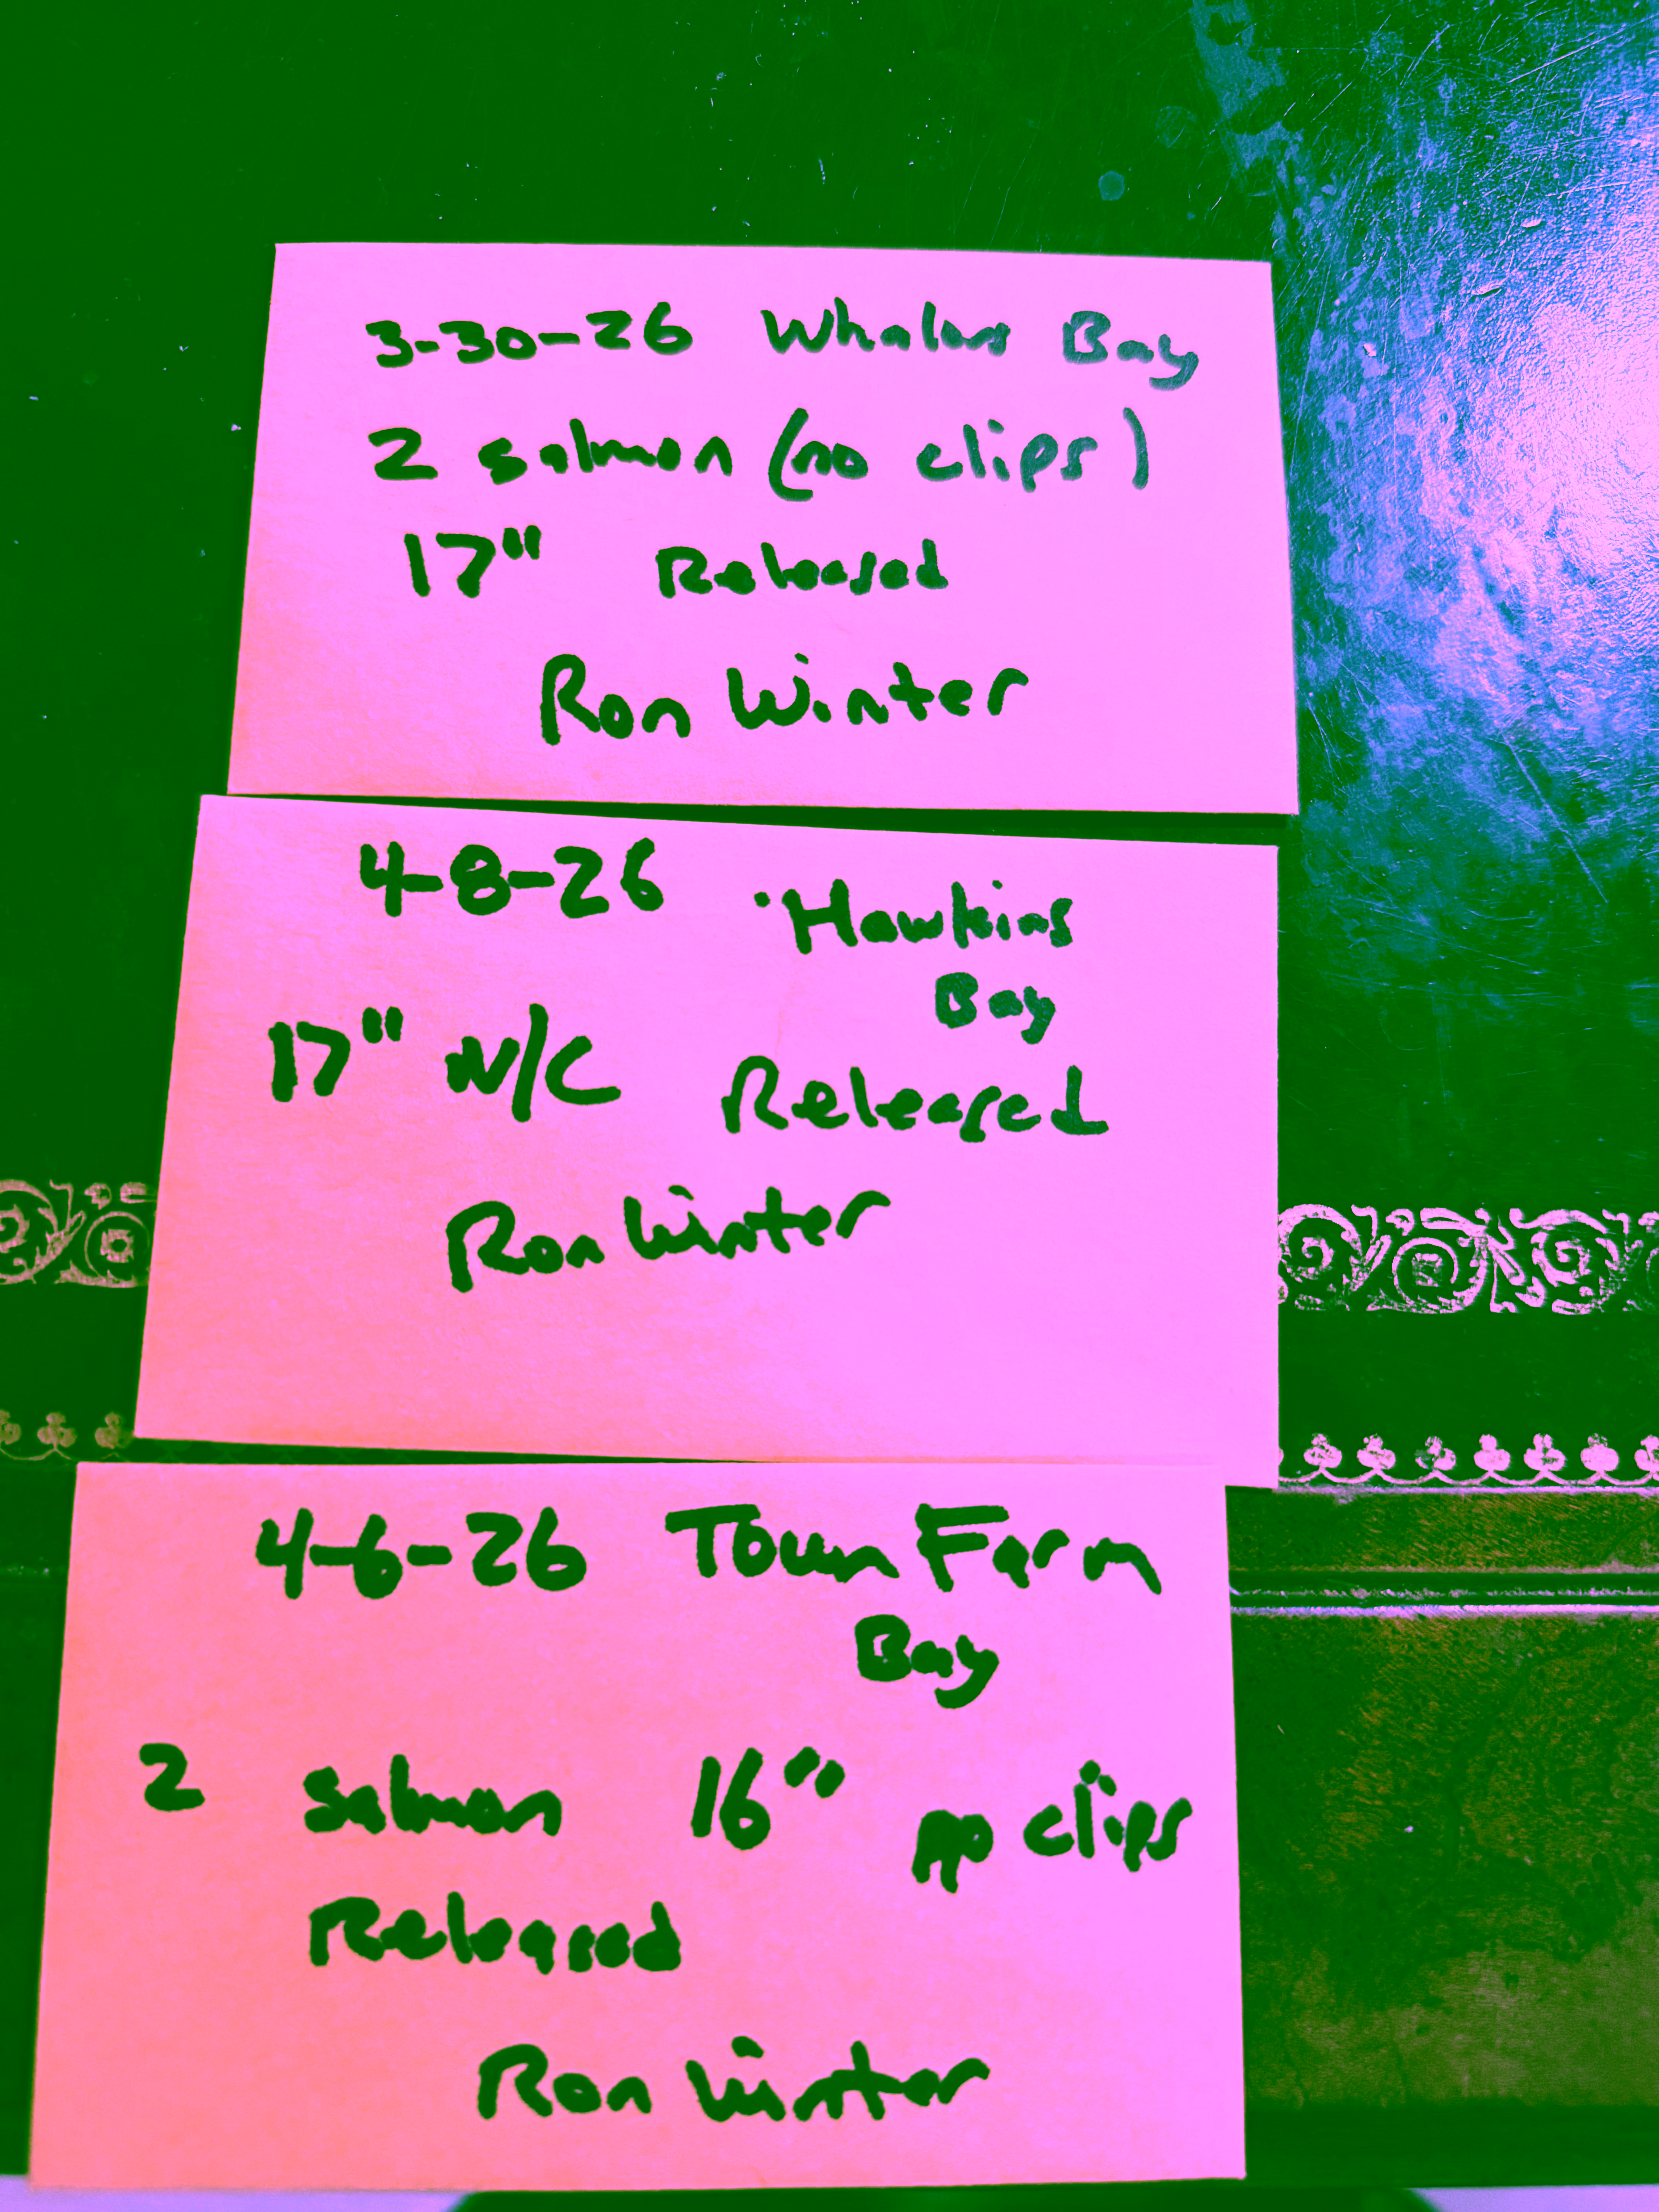 3-30-26 Whalers Bay
2 salmon (no clips)
17" Released
Ron Winter
4-8-26 Hawkins
Bay
17" N/C Released
Ron Winter
4-6-26 Town Farm
Bay
2 salmon 16" no clips
Released
Ron Winter